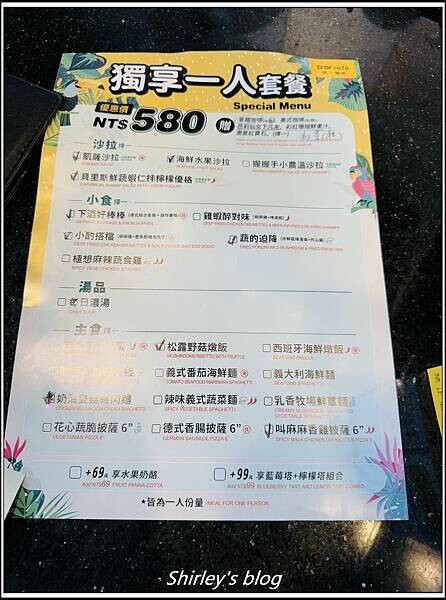 D'Or café
獨享一人套餐
Special Menu
優惠價
NT$580
贈
沙拉 擇一
凱薩沙拉
海鮮水果沙拉
SEAFOOD FRUIT SALAD
握握手小農溫沙拉
貝里斯鮮蔬蝦仁拌檸檬優格
小食 擇一
下酒好棒棒
GERMAN SAUSAGE & FRENCH FRIES
雞蝦醉對味
小酌搭檔
蔬的迫降
植想麻辣蔬食雞
湯品
每日濃湯
DAILY SOUP
主食 擇一
松露野菇燉飯
MUSHROOMS RISOTTO WITH TRUFFLE
西班牙海鮮燉飯
SEAFOOD PAELLA
義式番茄海鮮麵
TOMATO SEAFOOD MARINARA SPAGHETTI
義大利海鮮麵
SEAFOOD SPAGHETTI
奶油蘑菇雞肉麵
CHICKEN MUSHROOM CREAM SPAGHETTI
辣味義式蔬菜麵
SPICY VEGETABLE SPAGHETTI
乳香牧場鮮蕈麵
花心蔬脆披薩 6”
VEGETARIAN PIZZA 6"
德式香腸披薩 6”
GERMAN SAUSAGE PIZZA 6"
叫麻麻香雞披薩 6”
SPICY MALA CHICKEN DRUMLETTES PIZZA 6"
+69元 享水果奶酪
Add NT$69 FRUIT PANNA COTTA
+99元 享藍莓塔+檸檬塔組合
Add NT$99 BLUEBERRY TART AND LEMON TART COMBO
*皆為一人份量 MEAL FOR ONE PERSON
Shirley's blog